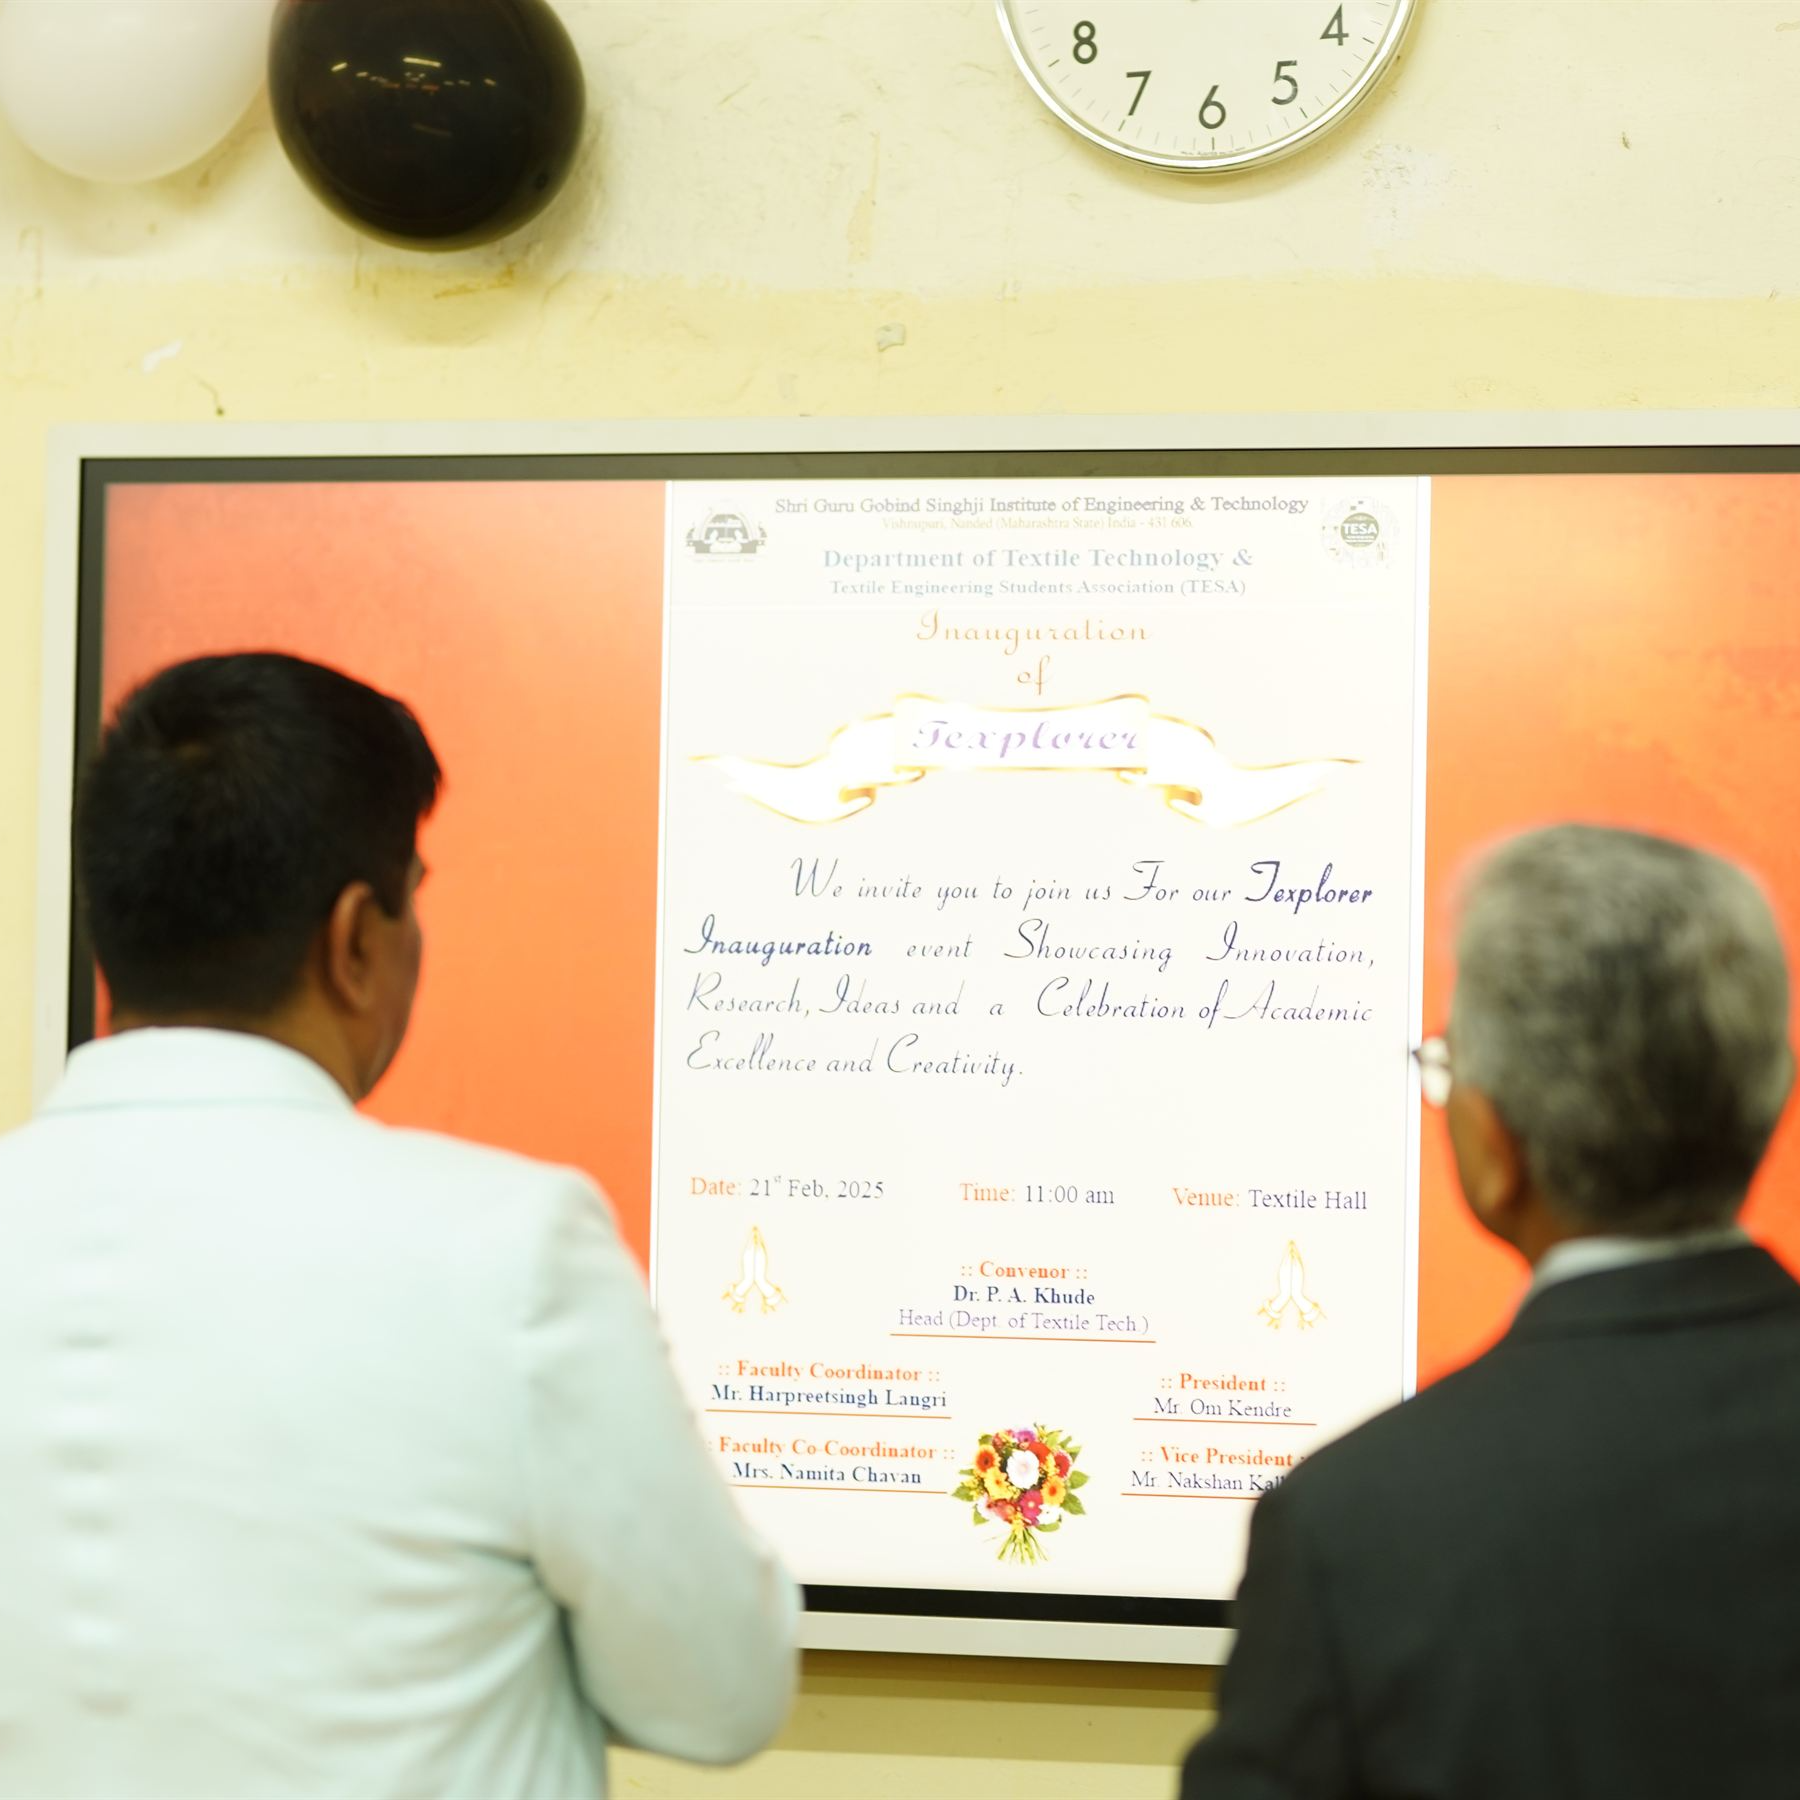 8 7 6 5 4
Shri Guru Gobind Singhji Institute of Engineering & Technology
Vishnupuri, Nanded (Maharashtra State) India - 431 606.
TESA
Department of Textile Technology &
Textile Engineering Students Association (TESA)
Inauguration
of
Texplorer
We invite you to join us For our Texplorer
Inauguration event Showcasing Innovation,
Research, Ideas and a Celebration of Academic
Excellence and Creativity.
Date: 21st Feb, 2025 Time: 11:00 am Venue: Textile Hall
:: Convenor ::
Dr. P. A. Khude
Head (Dept. of Textile Tech.)
:: Faculty Coordinator ::
Mr. Harpreetsingh Langri
:: President ::
Mr. Om Kendre
: Faculty Co-Coordinator ::
Mrs. Namita Chavan
:: Vice President :
Mr. Nakshan